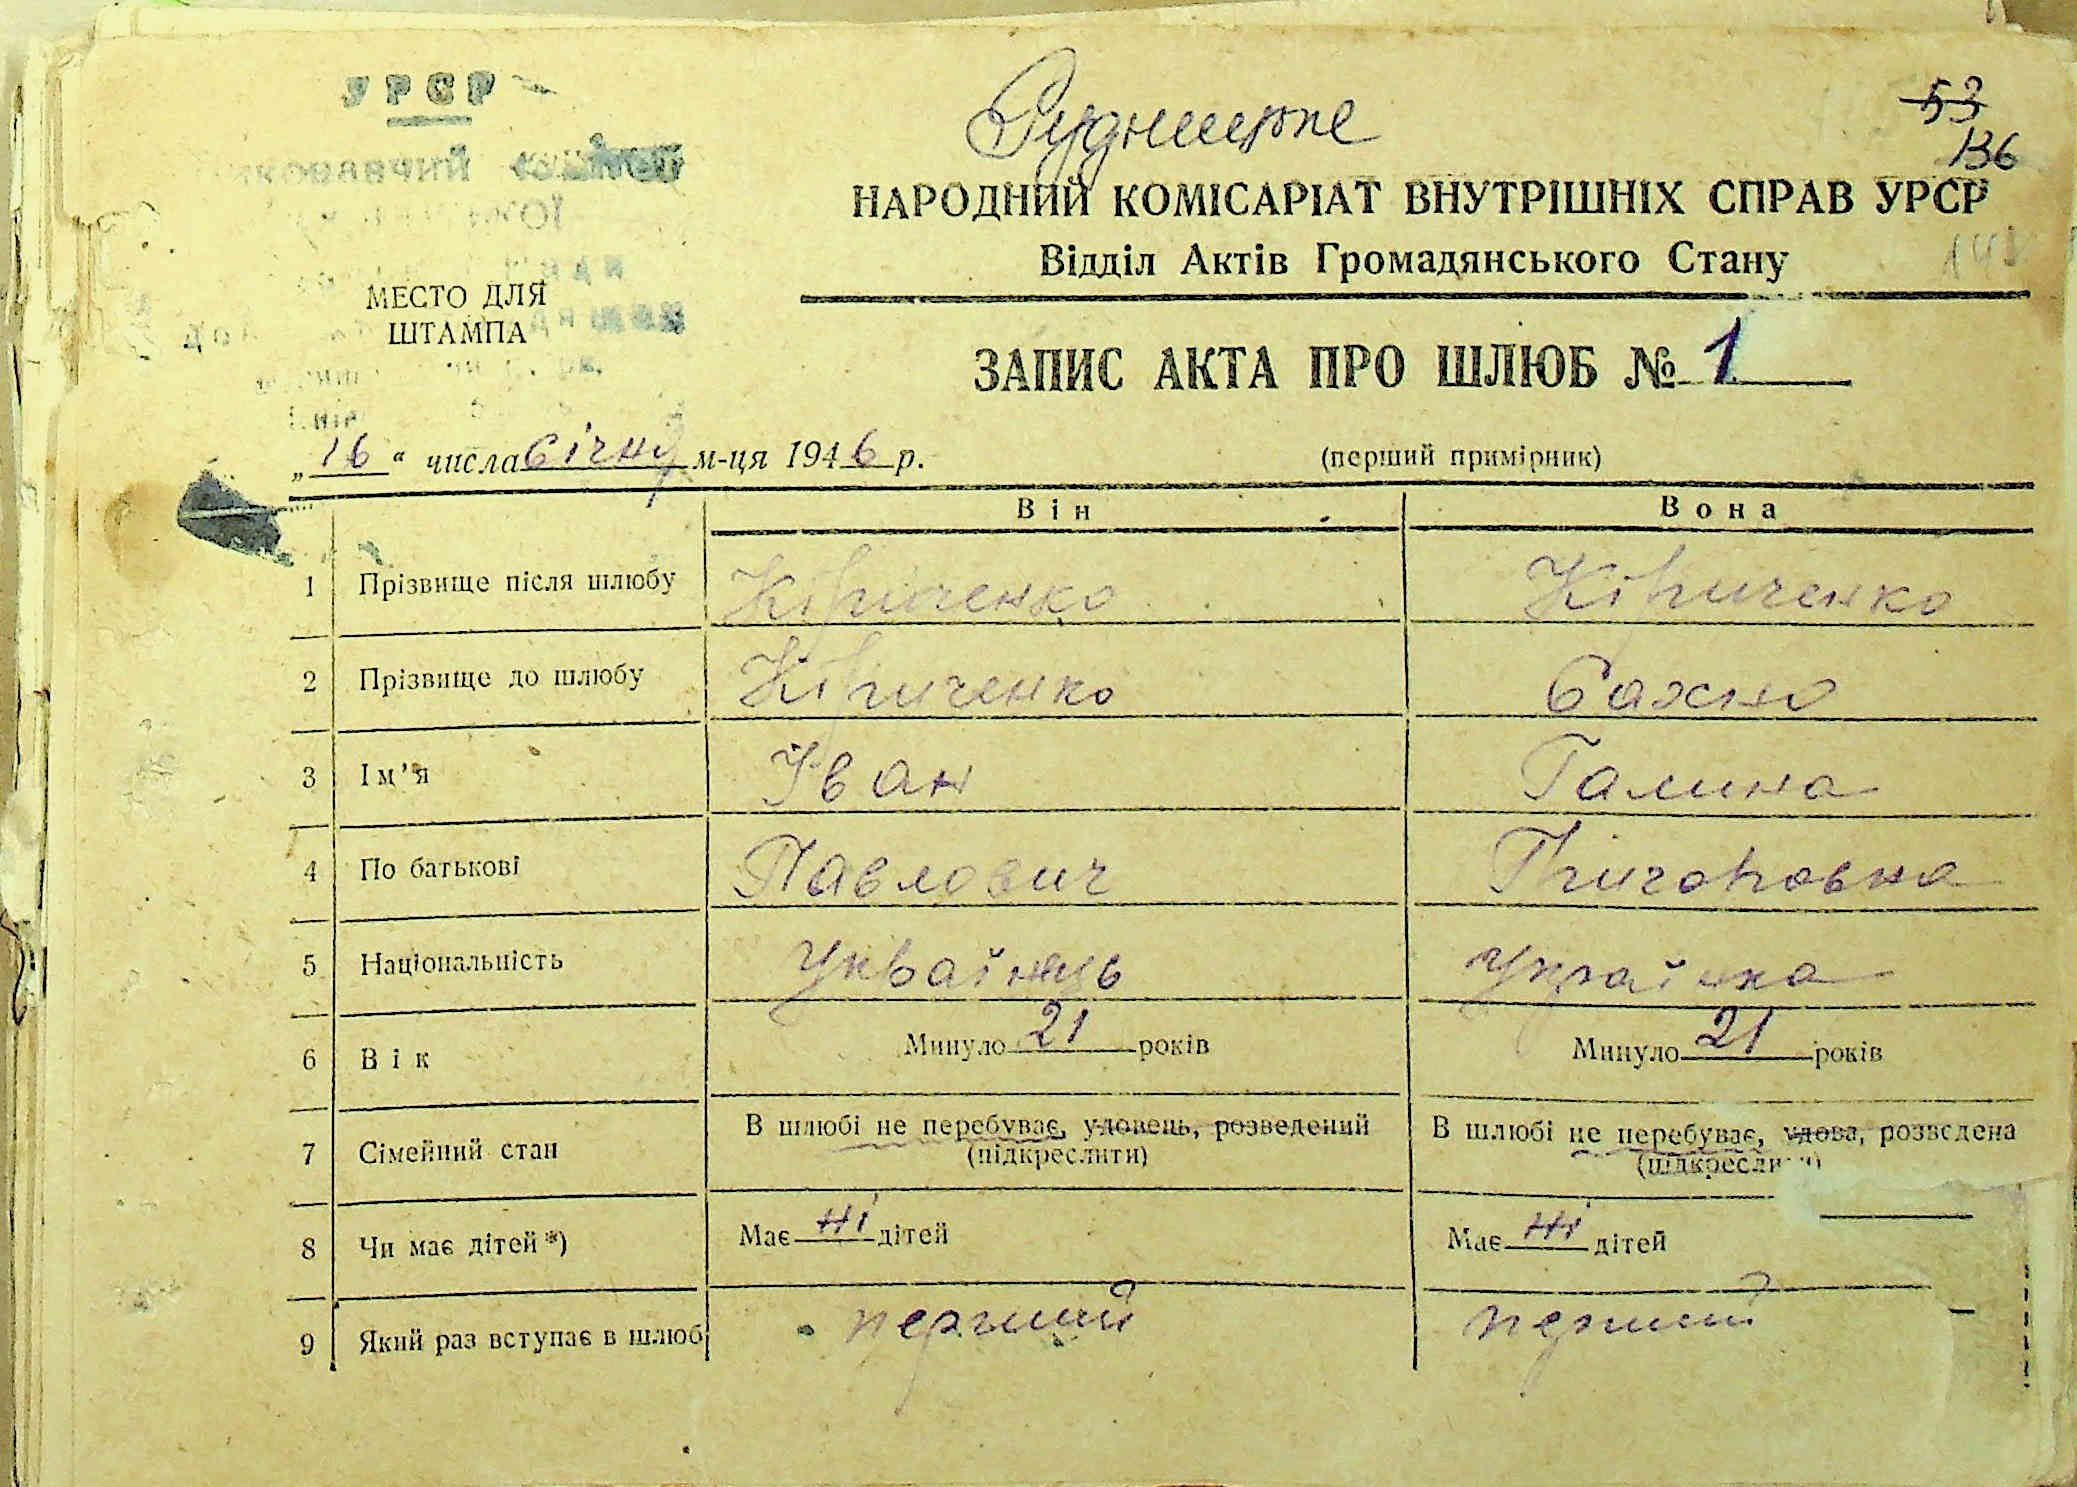 УРСР
Рудницьке
53
136
НАРОДНИЙ КОМІСАРІАТ ВНУТРІШНІХ СПРАВ УРСР
Відділ Актів Громадянського Стану
МЕСТО ДЛЯ
ШТАМПА
ЗАПИС АКТА ПРО ШЛЮБ № 1
„16“ числа січня м-ця 1946 р.
(перший примірник)
Він Вона
1 Прізвище після шлюбу Кіриченко Кіриченко
2 Прізвище до шлюбу Кіриченко Сахно
3 Ім'я Іван Галина
4 По батькові Павлович Григоровна
5 Національність Українець Українка
6 Вік Минуло 21 років Минуло 21 років
7 Сімейний стан В шлюбі не перебуває, удовець, розведений В шлюбі не перебуває, удова, розведена
(підкреслити) (підкреслити)
8 Чи має дітей *) Має ні дітей Має ні дітей
9 Який раз вступає в шлюб перший перший